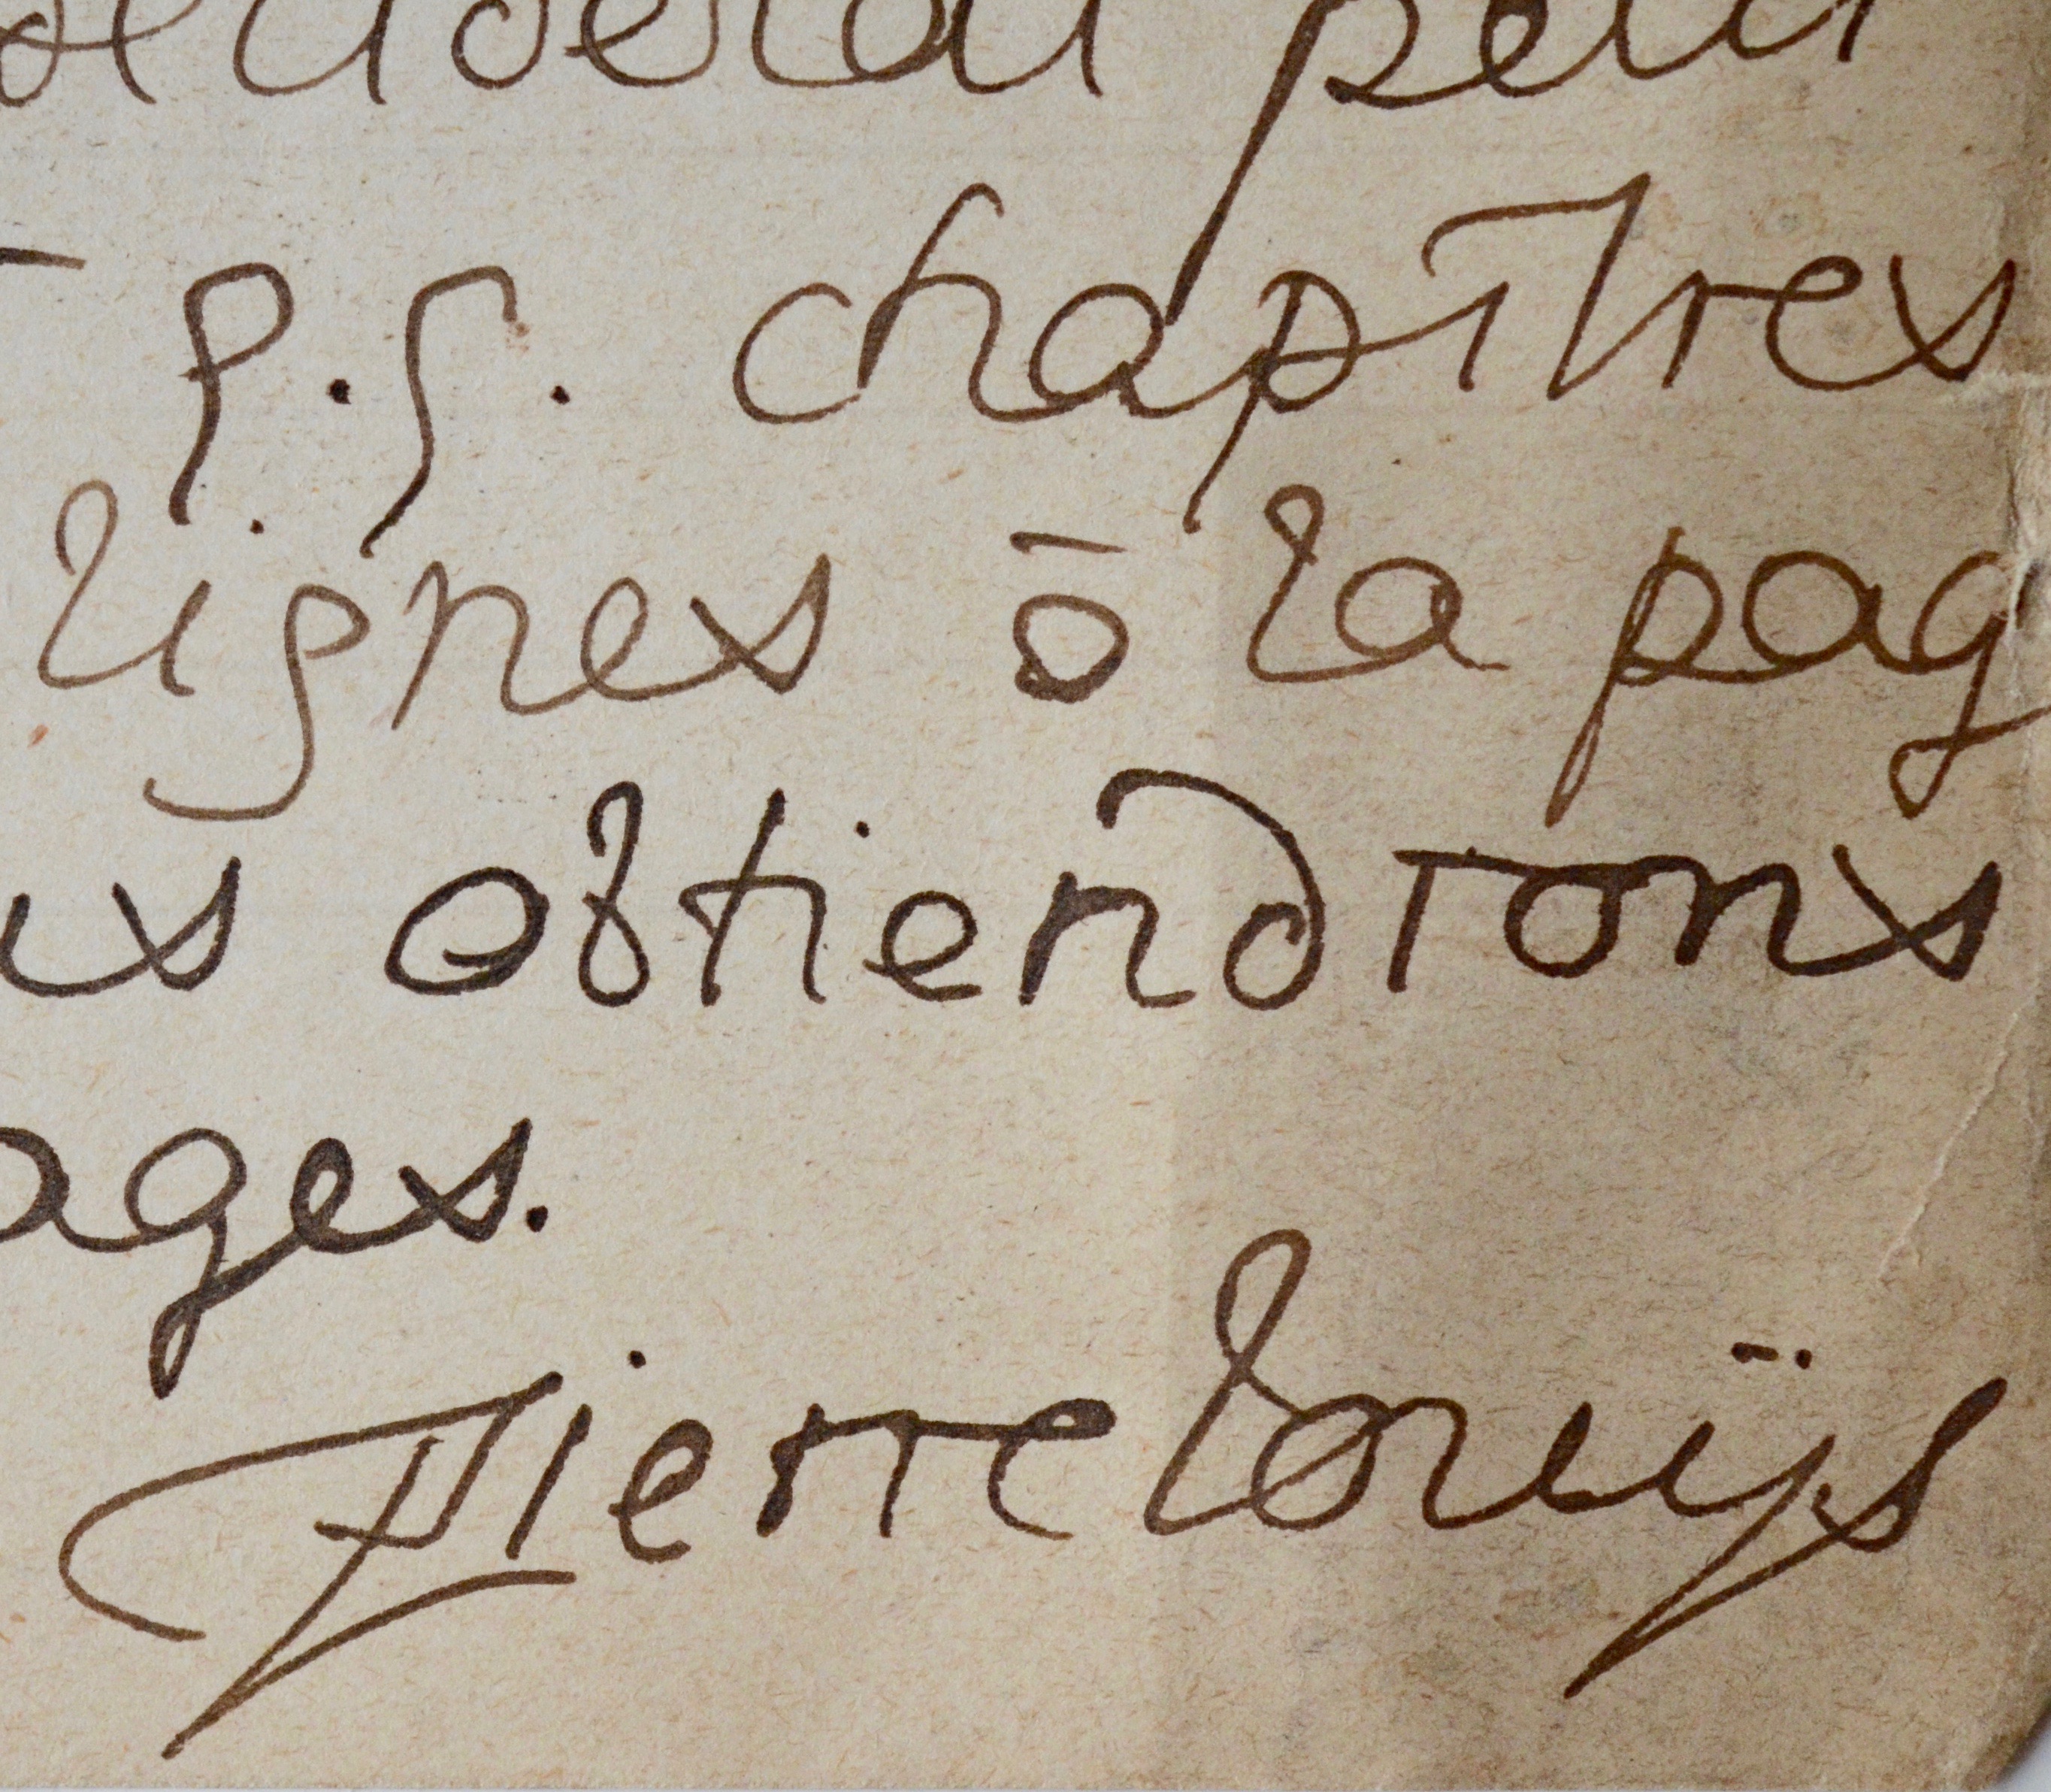 p.s. chapitres
lignes à la pag
us obtiendrons
ages.
Pierre Louÿs